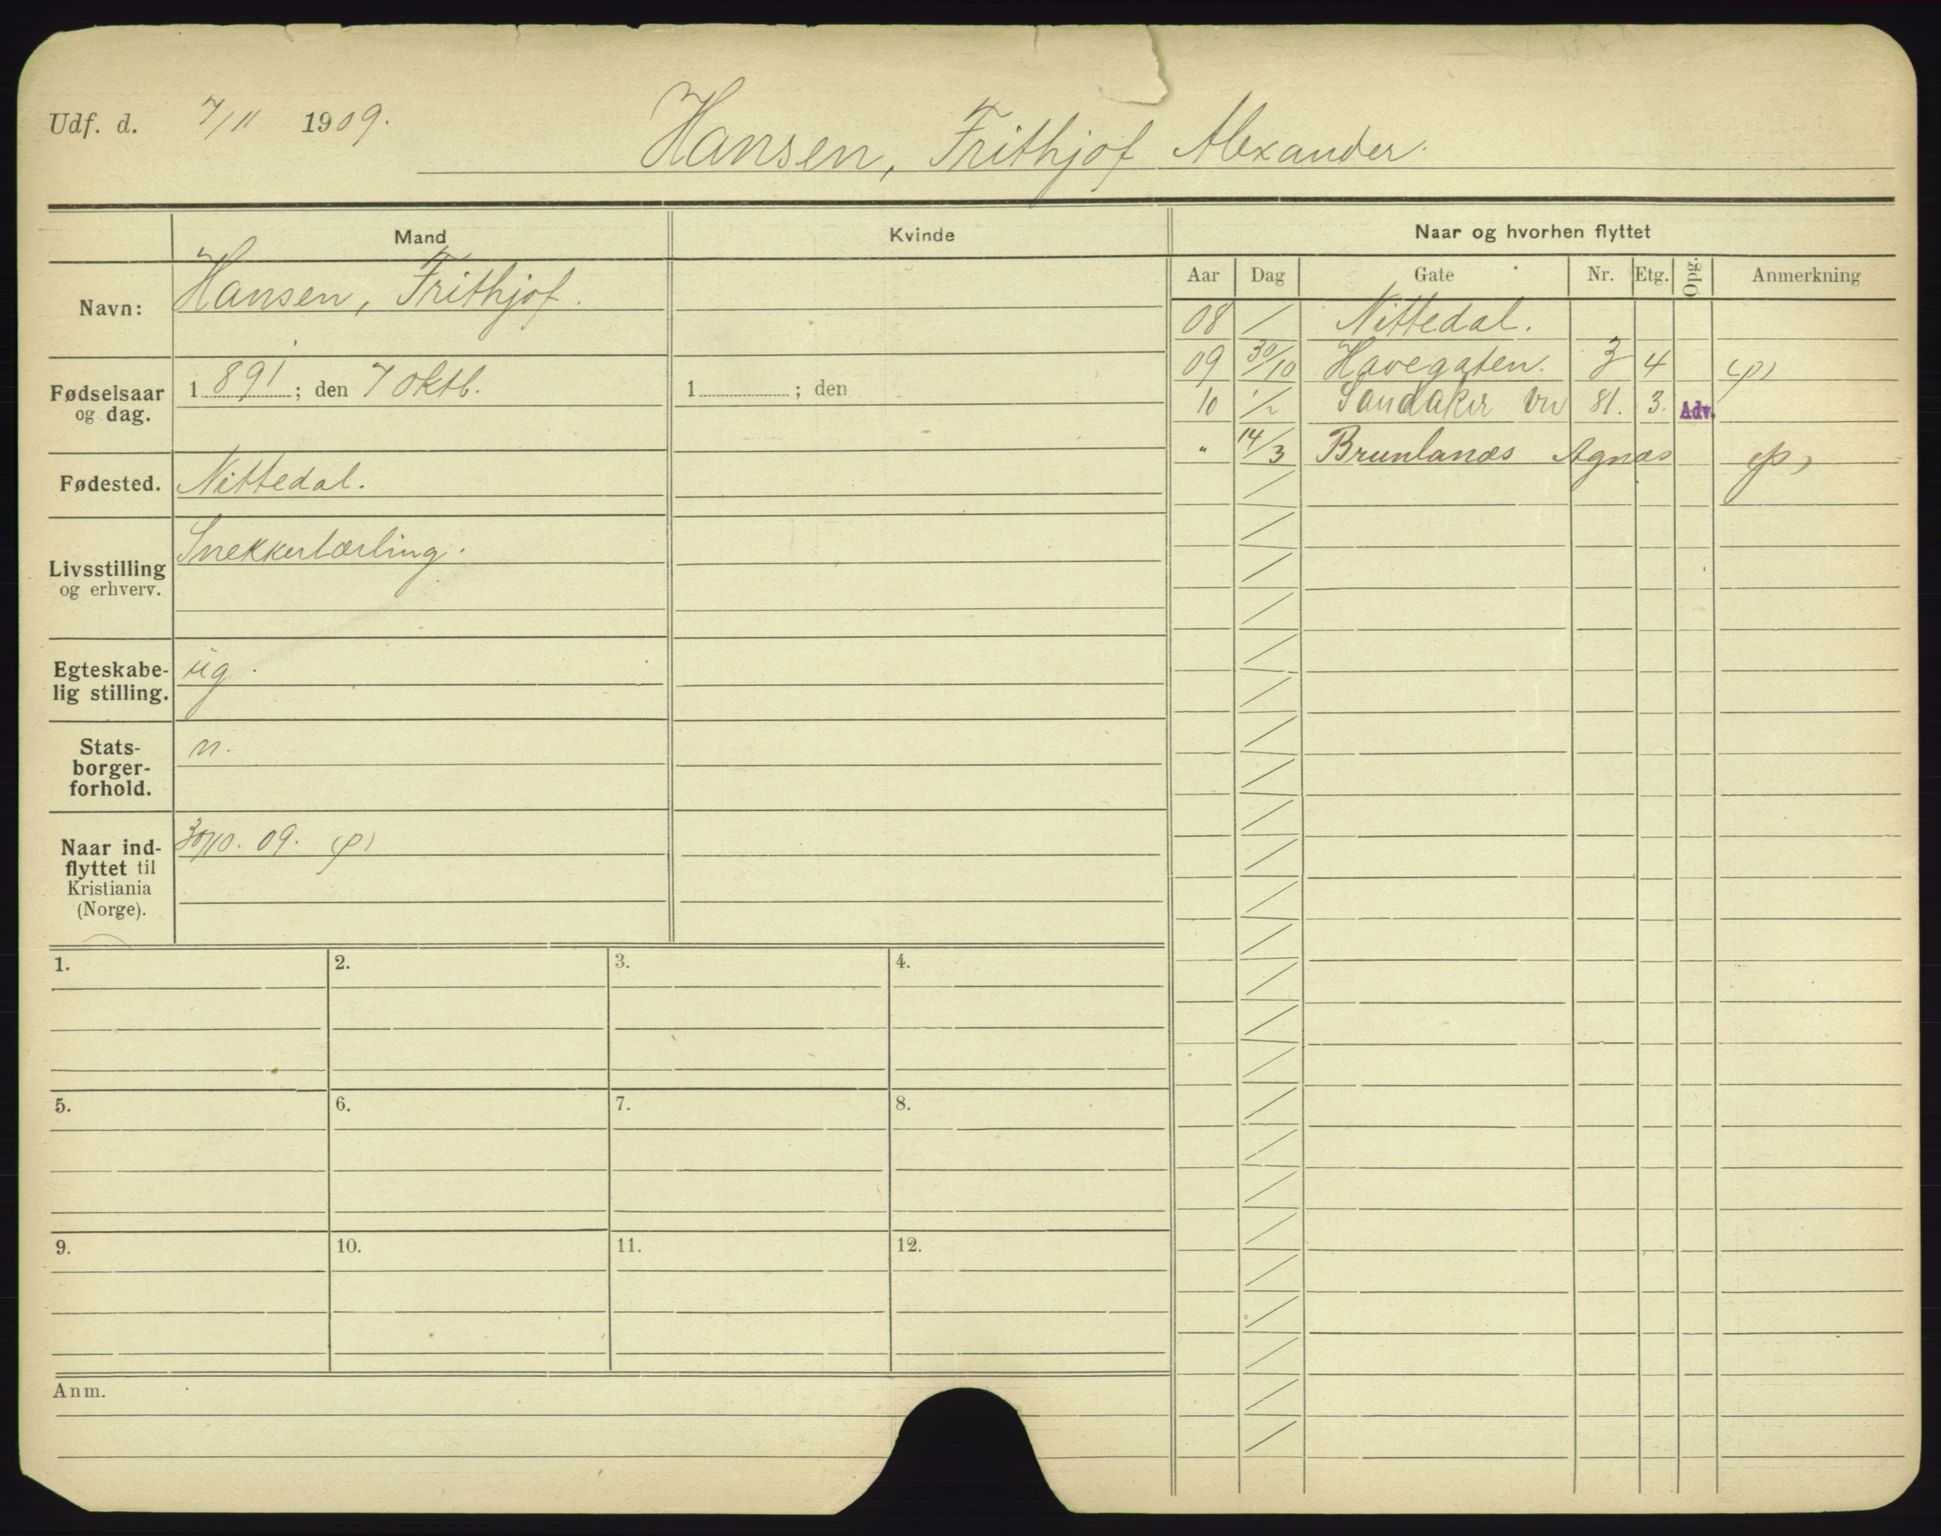 Udf. d. 7/11 1909. Hansen, Frithjof Alexander.
Mand Kvinde Naar og hvorhen flyttet
Aar Dag Gate Nr. Etg. Opg. Anmerkning
Navn: Hansen, Frithjof.
08 / Nittedal.
09 30/10 Havegaten. 3 4 (p)
10 1/2 Sandaker vn 81. 3. Adv.
" 14/3 Brunlanæs Agnæs (p)
Fødselsaar og dag. 1891; den 7 oktb. 1 ; den
Fødested. Nittedal.
Livsstilling og erhverv. Snekkerlærling.
Egteskabe-
lig stilling. ug.
Stats-
borger-
forhold. n.
Naar ind-
flyttet til
Kristiania
(Norge). 30/10. 09. (p)
1. 2. 3. 4.
5. 6. 7. 8.
9. 10. 11. 12.
Anm.